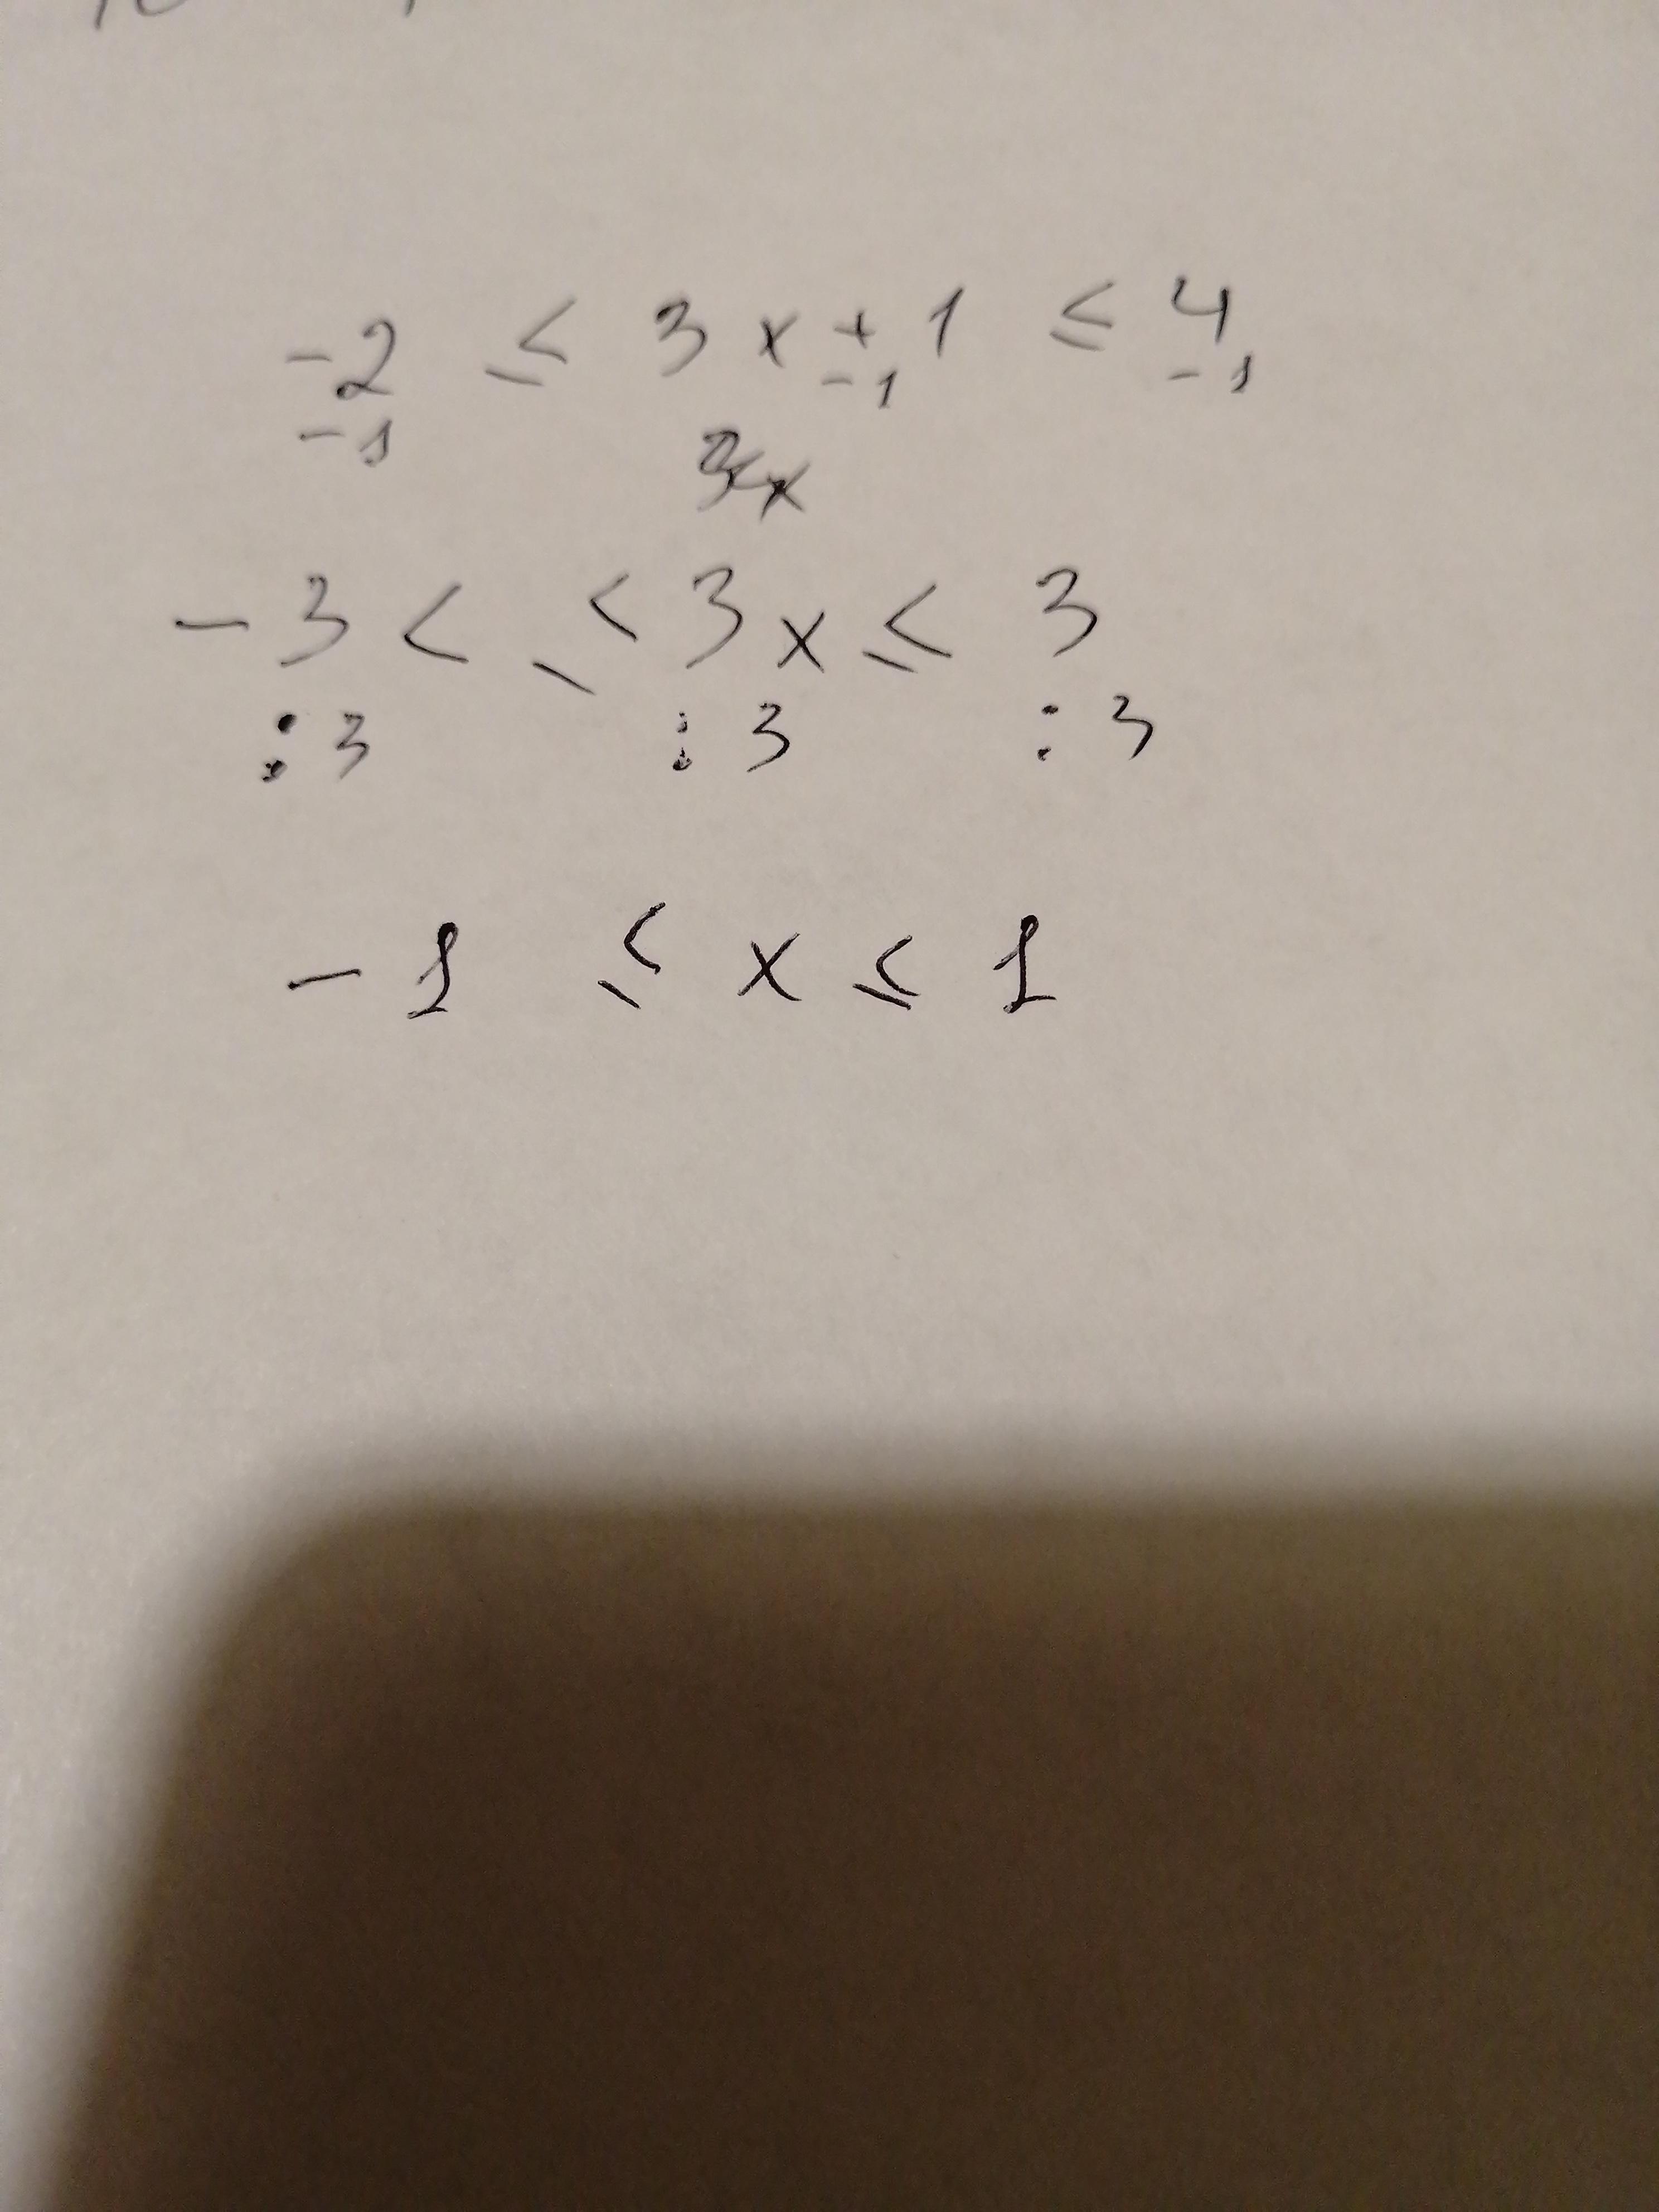 -2 ≤ 3x + 1 ≤ 4
-1 -1 -1
3x
-3 < ≤ 3x ≤ 3
:3 :3 :3
-1 ≤ x ≤ 1